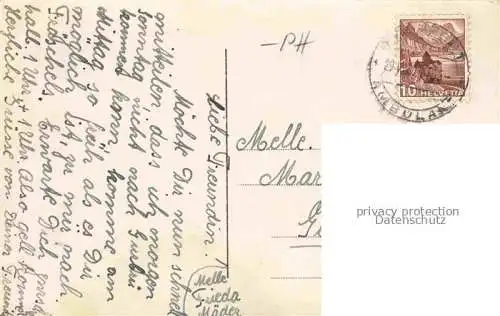 Liebe Freundin!
Möchte Dir nun schnell
mitteilen, dass ich morgen
Sonntag nicht nach Gurbrü
kommen kann. komme am
Mittag so früh als es Dir
möglich ist, zu mir nach
Fräschels. Erwarte Dich
halb 1 Uhr + 1 Uhr. Also gell komm
Herzliche Grüsse von Deiner Freundin
Melle
Frieda
Mäder
-PH
10 HELVETIA
AMBULANT
Melle.
Mar
privacy protection
Datenschutz